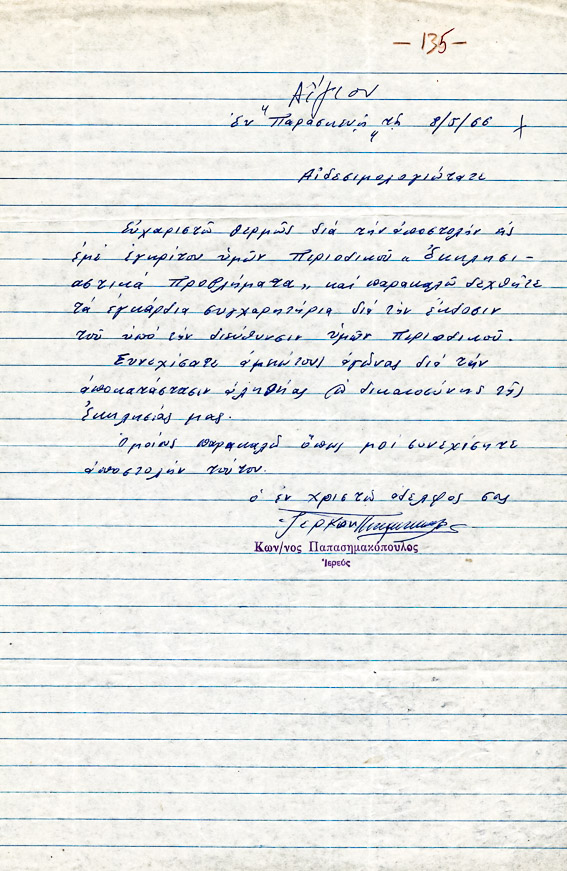 - 135 -
Αἴγιον
ἐν "Παρασκευῇ" τῇ 8/5/66
Αἰδεσιμολογιώτατε
Εὐχαριστῶ θερμῶς διὰ τὴν ἀποστολὴν εἰς
ἐμὲ ἐγκρίτου ὑμῶν Περιοδικοῦ "Ἐκκλησι-
αστικὰ Προβλήματα" καὶ παρακαλῶ δεχθῆτε
τὰ ἐγκάρδια συγχαρητήρια διὰ τὴν ἔκδοσιν
τοῦ ὑπὸ τὴν διεύθυνσιν ὑμῶν περιοδικοῦ.
Συνεχίσατε ἀμειώτους ἀγῶνας διὰ τὴν
ἀποκατάστασιν ἀληθείας δικαιοσύνης τῆς
Ἐκκλησίας μας.
Ὁμοίως παρακαλῶ ὅπως μοὶ συνεχίσητε
ἀποστολὴν τούτου.
ὁ ἐν Χριστῷ ἀδελφὸς σας
Κων/νος Παπασημακόπουλος
Ἱερεύς